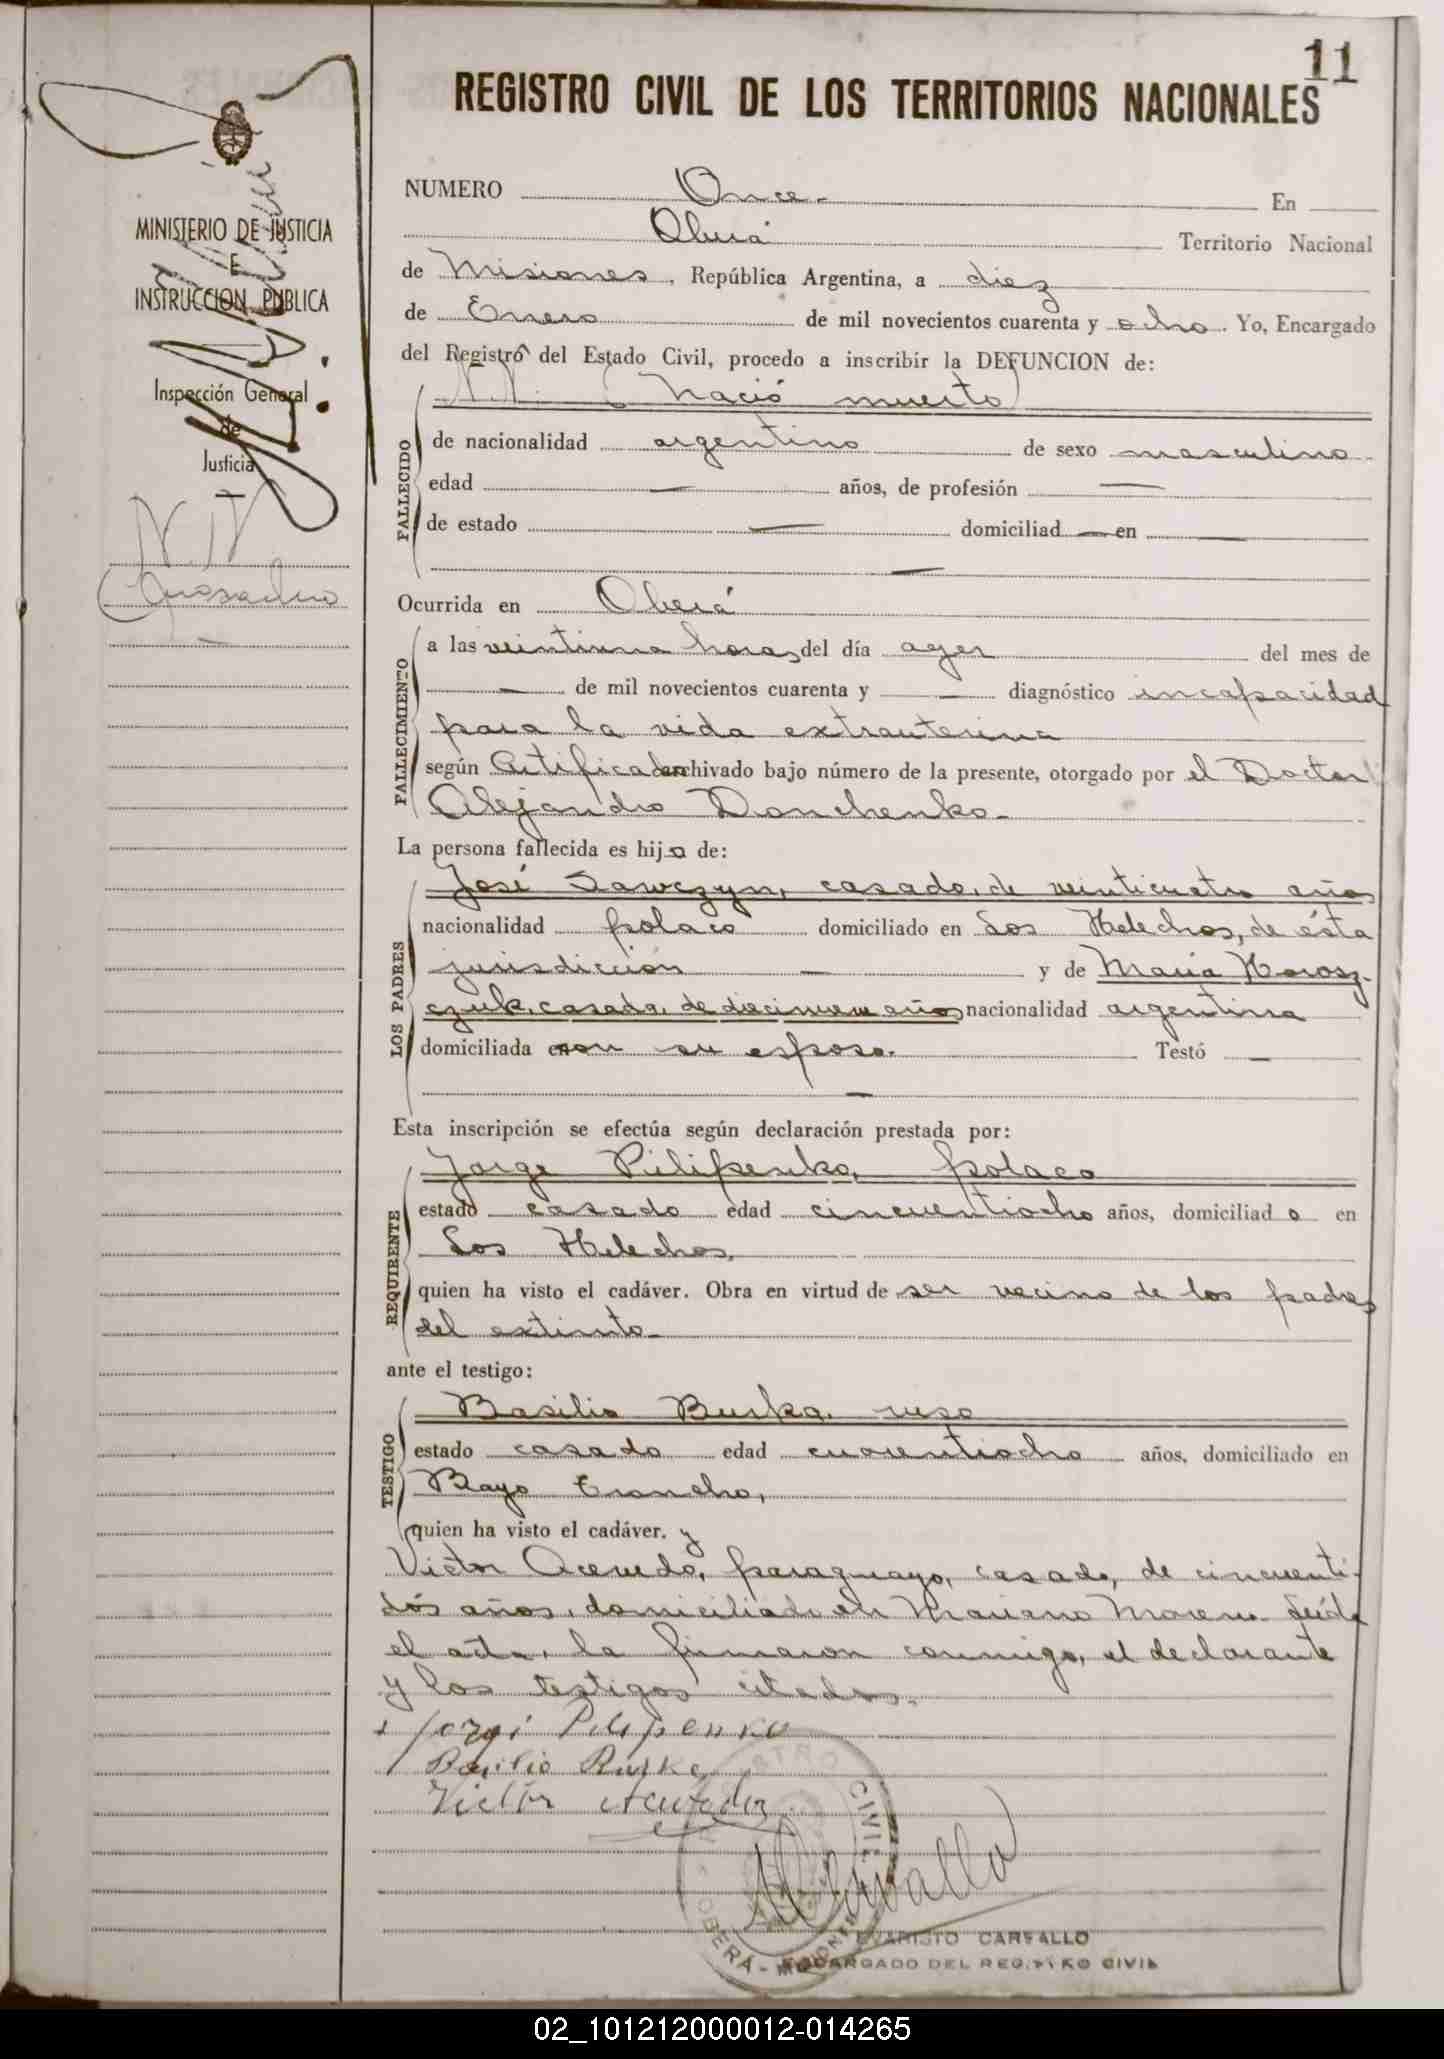 11
REGISTRO CIVIL DE LOS TERRITORIOS NACIONALES
MINISTERIO DE JUSTICIA
E
INSTRUCCION PUBLICA
Inspección General
de
Justicia
N.N
NUMERO Once.- En
Oberá Territorio Nacional
de Misiones, República Argentina, a diez
de Enero de mil novecientos cuarenta y ocho. Yo, Encargado
del Registro del Estado Civil, procedo a inscribir la DEFUNCION de:
N.N. (nació muerto)
FALLECIDO
de nacionalidad argentino de sexo masculino.
edad — años, de profesión —
de estado — domiciliad — en —
—
Ocurrida en Oberá
FALLECIMIENTO
a las veintiuna horas, del día ayer del mes de
— de mil novecientos cuarenta y — diagnóstico incapacidad
para la vida extrauterina
según Certificado archivado bajo número de la presente, otorgado por el Doctor
Alejandro Donchenko.-
La persona fallecida es hijo de:
LOS PADRES
José Sawczyn, casado, de veinticuatro años
nacionalidad polaco domiciliado en Los Helechos, de ésta
jurisdicción — y de María Horosz-
czuk, casada, de diecinueve años nacionalidad argentina
domiciliada con su esposo. Testó —
—
Esta inscripción se efectúa según declaración prestada por:
REQUIRENTE
Jorge Pilipenko, polaco
estado casado edad cincuentiocho años, domiciliado en
Los Helechos,
quien ha visto el cadáver. Obra en virtud de ser vecino de los padres
del extinto.-
ante el testigo:
TESTIGO
Basilio Burka, ruso
estado casado edad cuarentiocho años, domiciliado en
Bayo Troncho,
quien ha visto el cadáver. y
Victor Acevedo, paraguayo, casado, de cincuenti-
dós años, domiciliado en Mariano Moreno. Leída
el acta, la firmaron conmigo, el declarante
y los testigos citados.
Jorgi Pilipenko
Basilio Burka
Victor Acevedo
REGISTRO CIVIL
OBERÁ - MISIONES
Carvallo
EVARISTO CARVALLO
ENCARGADO DEL REGISTRO CIVIL
02_101212000012-014265